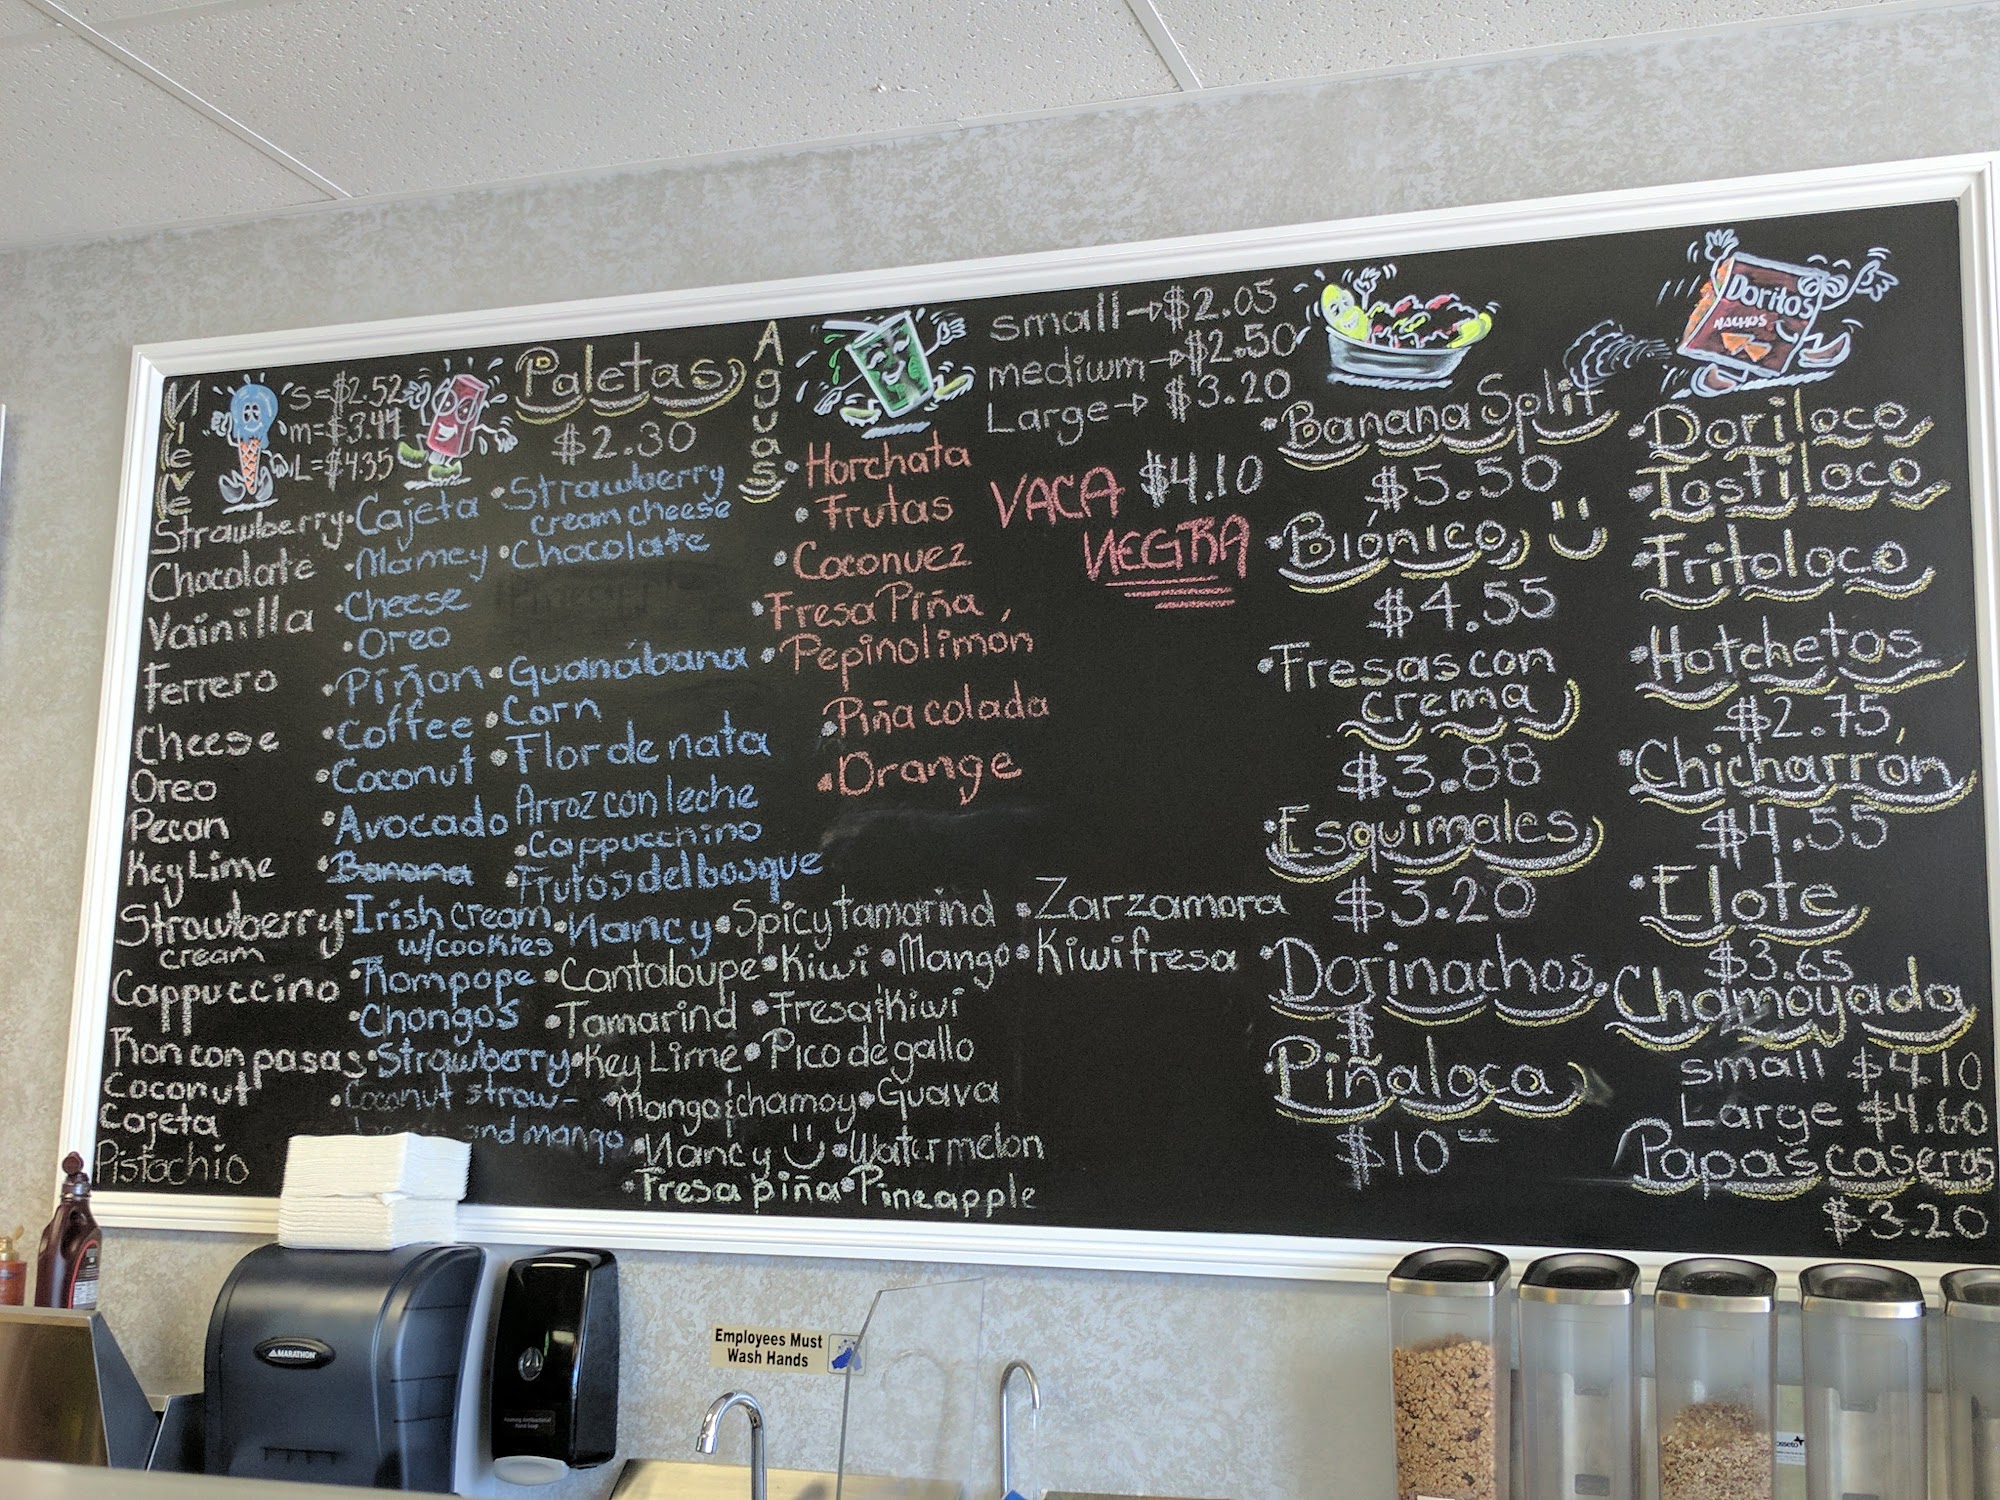 Nieve
S=$2.52
m=$3.44
L=$4.35
Strawberry
Chocolate
Vainilla
Ferrero
Cheese
Oreo
Pecan
Key Lime
Strawberry
cream
Cappuccino
Ron con pasas
Coconut
Cajeta
Pistachio
Paletas
$2.30
•Cajeta
•Mamey
•Cheese
•Oreo
•Piñon
•Coffee
•Coconut
•Avocado
•Banana
•Irish cream
w/cookies
•Rompope
•Chongos
•Strawberry
•Coconut straw-
and mango
•Strawberry
cream cheese
•Chocolate
•Guanábana
•Corn
•Flor de nata
Arroz con leche
•Cappucchino
•Frutos del bosque
•Nancy •Spicy tamarind •Zarzamora
•Cantaloupe •Kiwi •Mango •Kiwi fresa
•Tamarind •Fresa & Kiwi
•Key Lime •Pico de gallo
•Mango & chamoy •Guava
•Nancy •Watermelon
•Fresa piña •Pineapple
Aguas
small→$2.05
medium→$2.50
Large→$3.20
•Horchata
•Frutas
•Coconuez
•Fresa Piña
•Pepino limón
•Piña colada
•Orange
VACA $4.10
NEGRA
•Banana Split
$5.50
•Biónico
$4.55
•Fresas con
crema
$3.88
•Esquimales
$3.20
•Dorinachos
$
•Piñaloca
$10
Doritos
NACHOS
•Doriloco
•Tostiloco
•Fritoloco
•Hotchetos
$2.75
•Chicharrón
$4.55
•Elote
$3.65
•Chamoyada
small $4.10
Large $4.60
Papas caseras
$3.20
MARATHON
Employees Must
Wash Hands